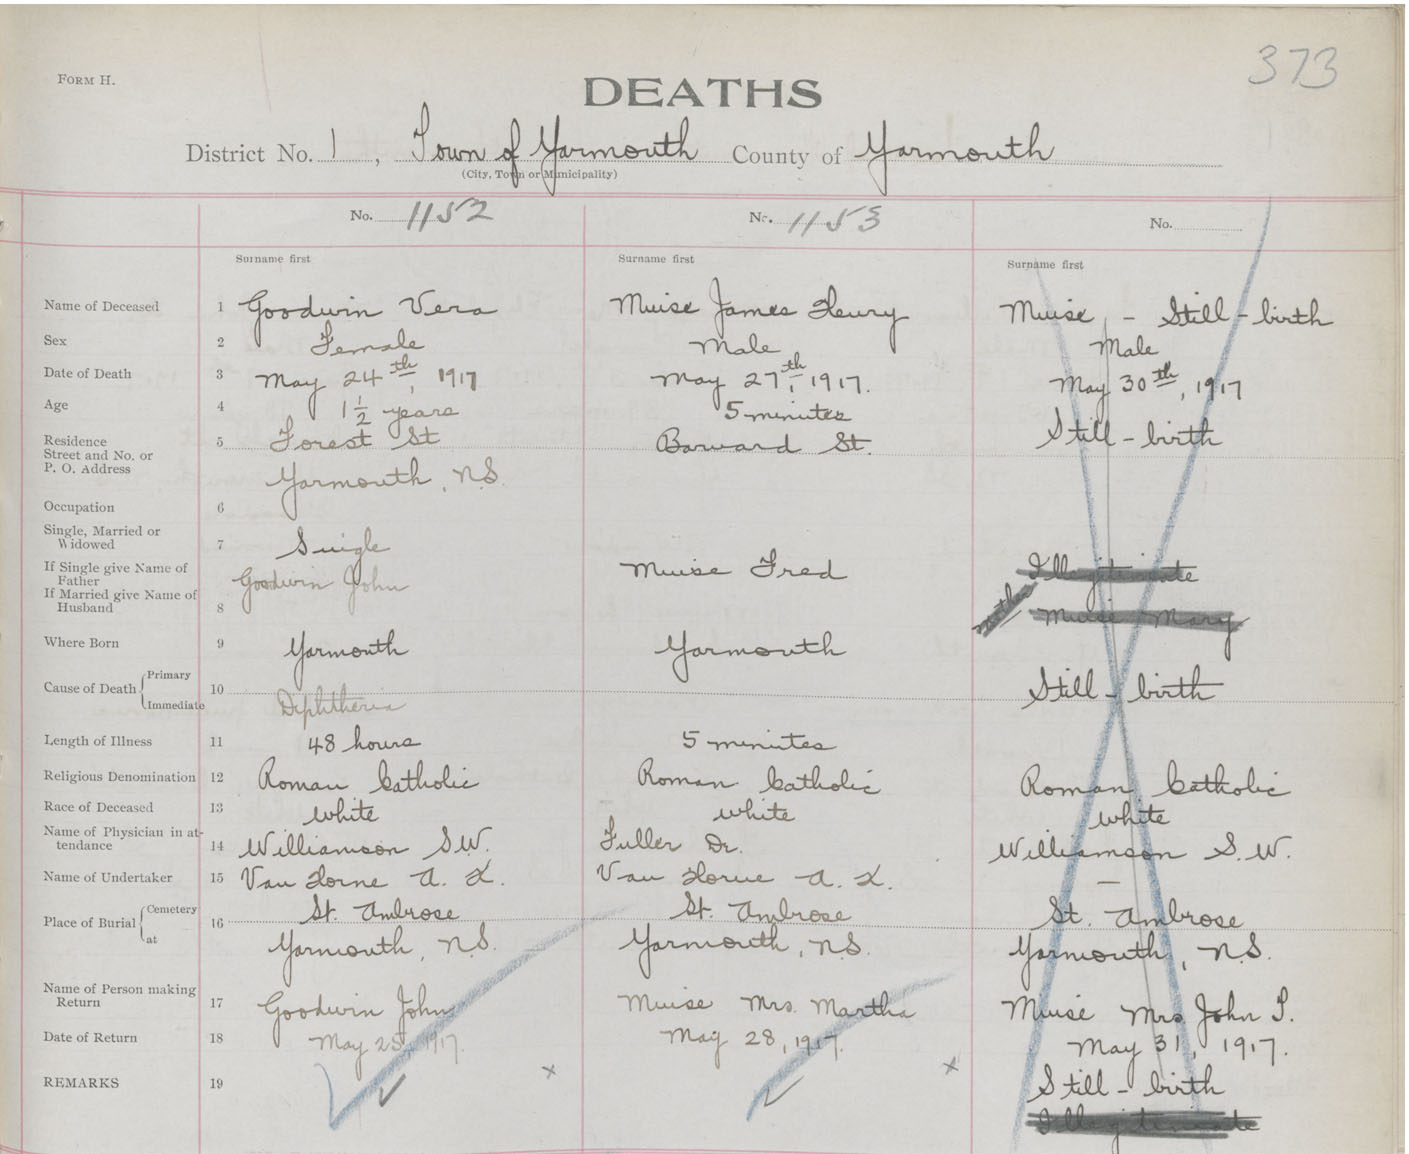 373
FORM H.
DEATHS
District No. 1, Town of Yarmouth County of Yarmouth
(City, Town or Municipality)
No. 1152 No. 1153 No.
Surname first Surname first Surname first
Name of Deceased 1 Goodwin Vera Muise James Henry Muise - Still-birth
Sex 2 Female Male Male
Date of Death 3 May 24th, 1917 May 27th, 1917. May 30th, 1917
Age 4 1 1/2 years 5 minutes Still-birth
Residence
Street and No. or 5 Forest St Barnard St.
P. O. Address Yarmouth, N.S.
Occupation 6
Single, Married or
Widowed 7 Single
If Single give Name of
Father Goodwin John Muise Fred Illegitimate
If Married give Name of
Husband 8 mother Muise Mary
Where Born 9 Yarmouth Yarmouth
Cause of Death Primary 10 Still-birth
Immediate Diphtheria
Length of Illness 11 48 hours 5 minutes
Religious Denomination 12 Roman Catholic Roman Catholic Roman Catholic
Race of Deceased 13 white white white
Name of Physician in at-
tendance 14 Williamson S.W. Fuller Dr. Williamson S.W.
Name of Undertaker 15 Van Horne A. K. Van Horne A. K. —
Place of Burial Cemetery 16 St. Ambrose St. Ambrose St. Ambrose
at Yarmouth, N.S. Yarmouth, N.S. Yarmouth, N.S.
Name of Person making
Return 17 Goodwin John Muise Mrs. Martha Muise Mrs John
Date of Return 18 May 25, 1917. May 28, 1917. May 31, 1917.
REMARKS 19 x x Still-birth
Illegitimate